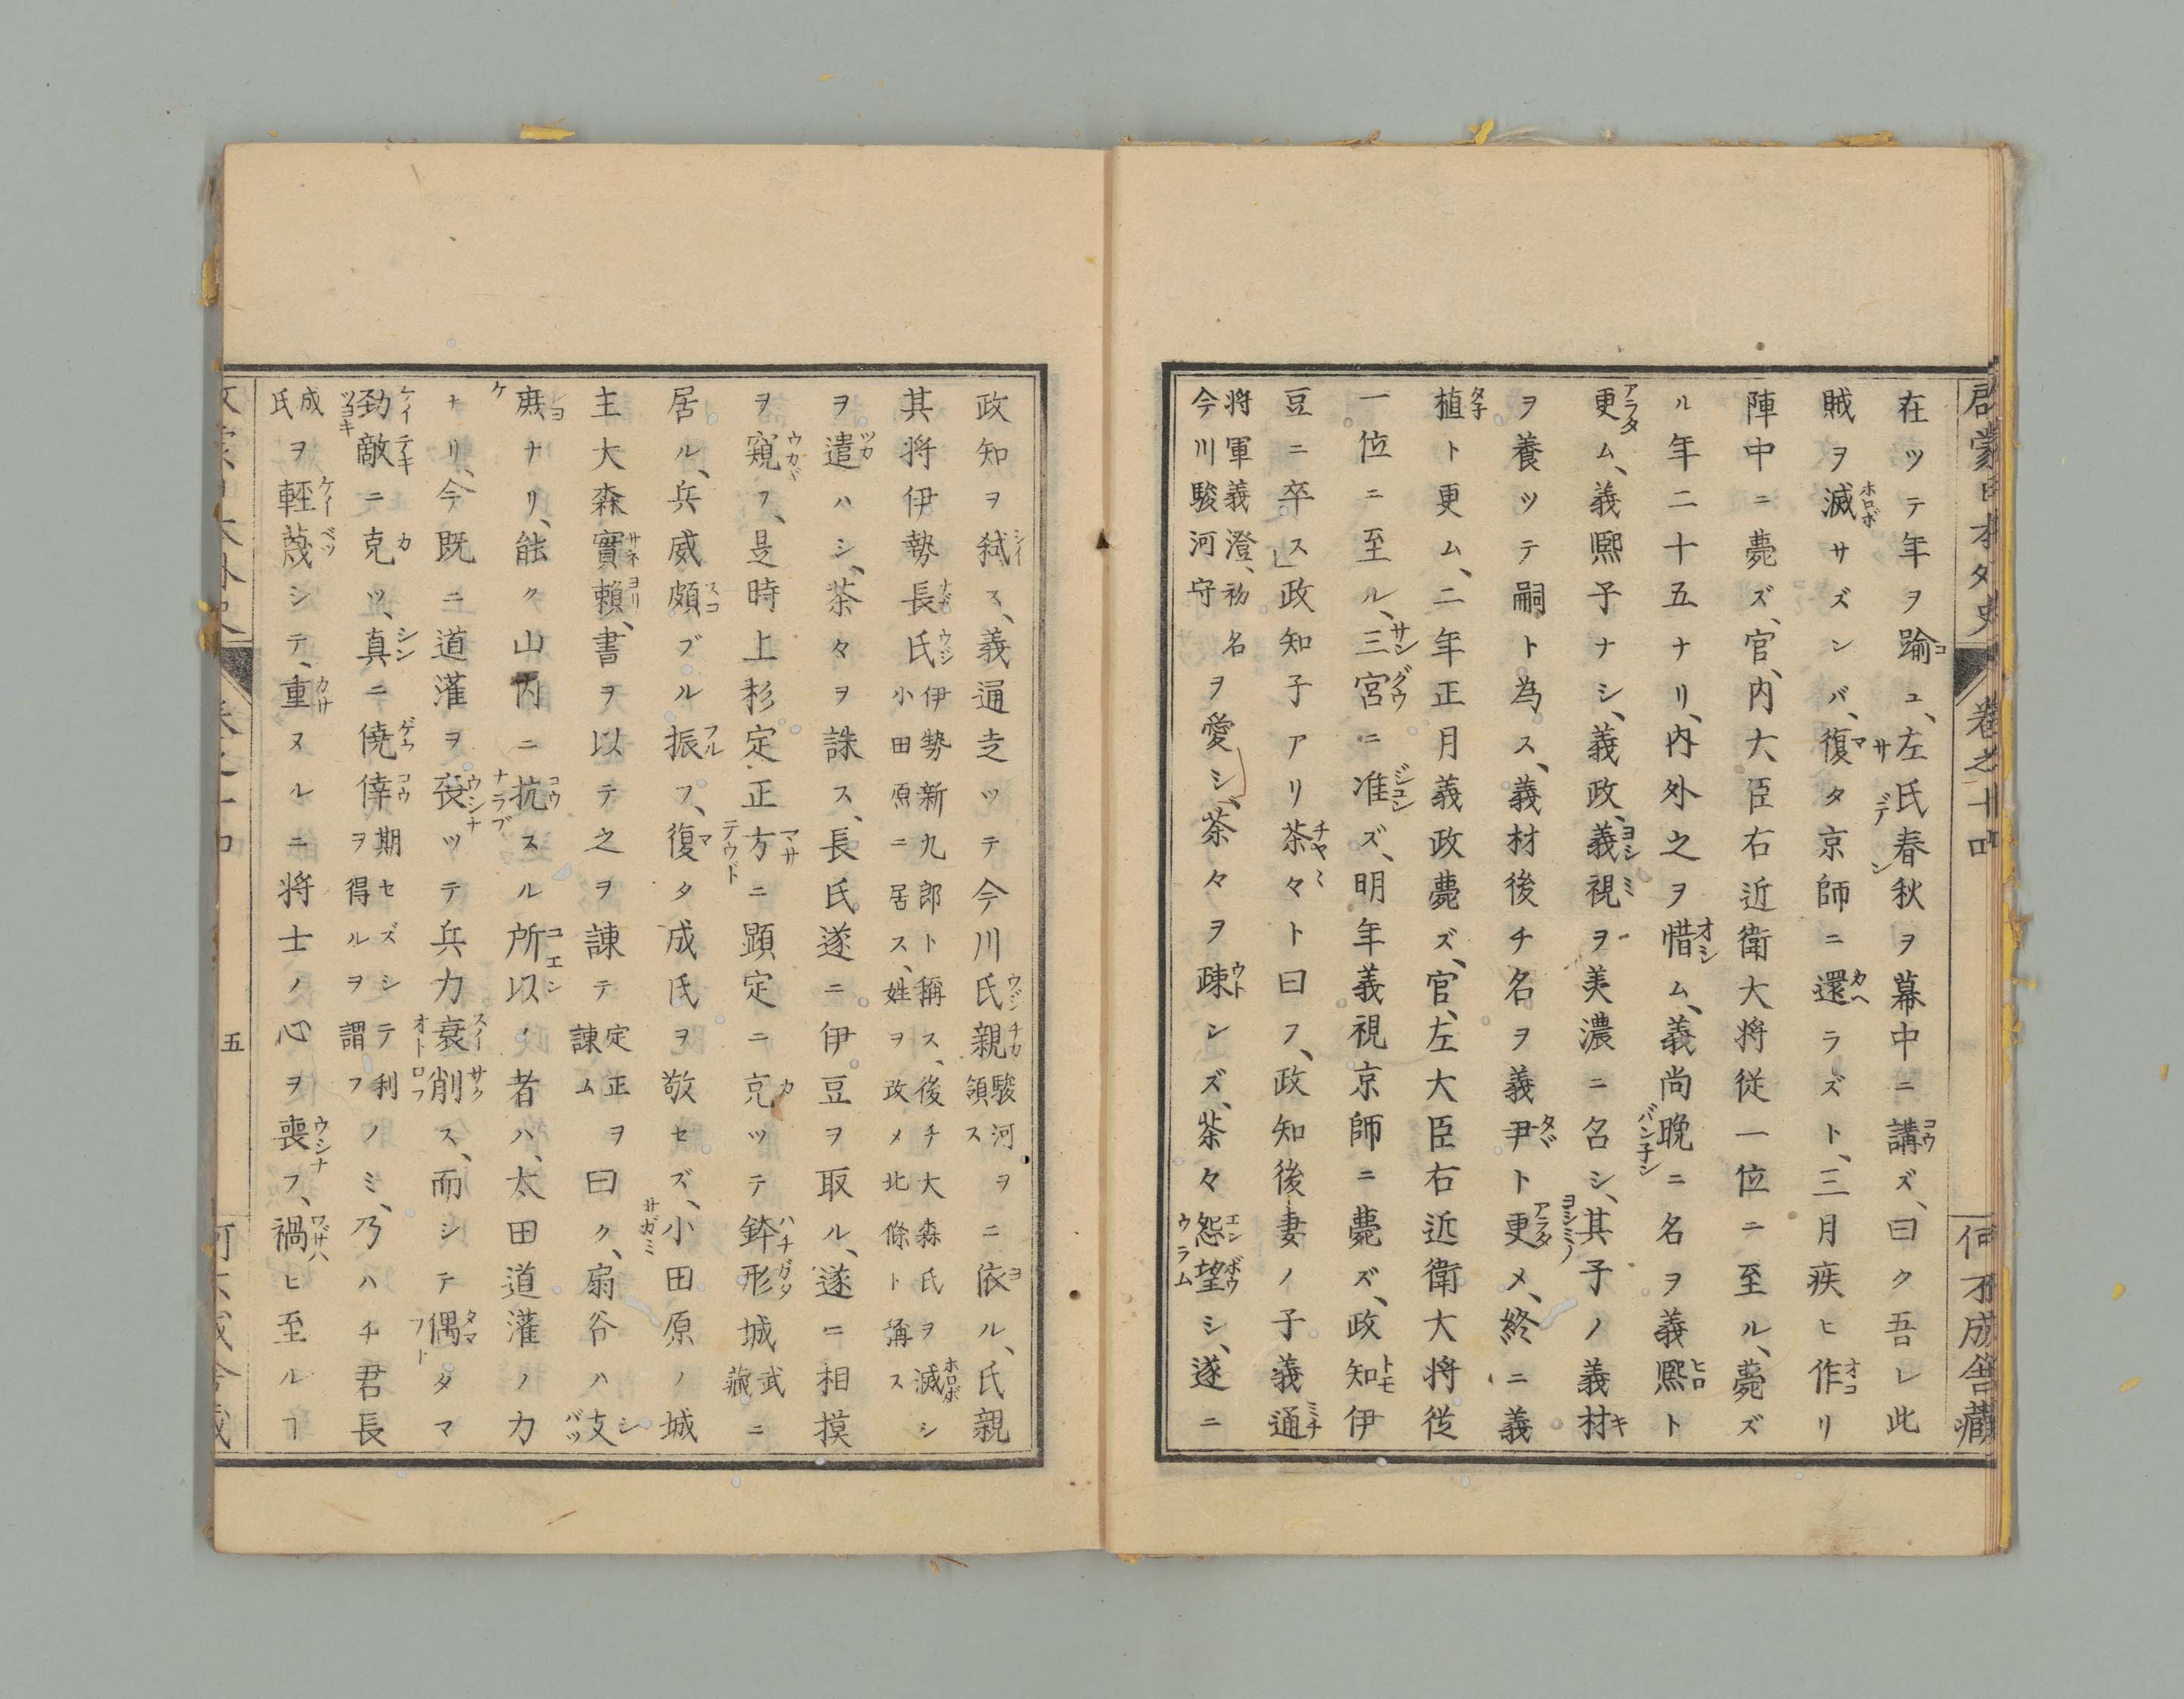 在ツテ年ヲ踰ユ、左氏春秋ヲ幕中ニ講ズ、曰ク吾レ此
賊ヲ滅サズンバ、復タ京師ニ還ラズト、三月疾ヒ作リ
陣中ニ薨ズ、官、内大臣右近衛大将従一位ニ至ル、薨ズ
ル年二十五ナリ、内外之ヲ惜ム、義尚晩ニ名ヲ義熙ト
更ム、義熙子ナシ、義政、義視ヲ美濃ニ召シ、其子ノ義材
ヲ養ツテ嗣ト為ス、義材後チ名ヲ義尹ト更メ、終ニ義
植ト更ム、二年正月義政薨ズ、官、左大臣右近衛大将従
一位ニ至ル、三宮ニ准ズ、明年義視京師ニ薨ズ、政知伊
豆ニ卒ス政知子アリ茶々ト曰フ、政知後妻ノ子義通
将軍義澄、初名
今川駿河守
ヲ愛シ、茶々ヲ疎ンズ、茶々怨望シ、遂ニ
政知ヲ弑ス、義通走ツテ今川氏親
駿河ヲ
領ス
ニ依ル、氏親
其将伊勢長氏
伊勢新九郎ト稱ス、後チ大森氏ヲ滅シ
小田原ニ居ス、姓ヲ改メ北條ト稱ス
ヲ遣ハシ、茶々ヲ誅ス、長氏遂ニ伊豆ヲ取ル、遂ニ相摸
ヲ窺フ、是時上杉定正方ニ顕定ニ克ツテ鉢形城
武
蔵
ニ
居ル、兵威頗ブル振フ、復タ成氏ヲ敬セズ、小田原ノ城
主大森實頼、書ヲ以テ之ヲ諌テ
定正ヲ
諌ム
曰ク、扇谷ハ支
庶ナリ、能ク山内ニ抗スル所以ノ者ハ、太田道灌ノ力
ナリ、今既ニ道灌ヲ喪ツテ兵力衰削ス、而シテ偶タマ
勁敵ニ克ツ、真ニ僥倖
期セズシテ利
ヲ得ルヲ謂フ
ノミ、乃ハチ君長
成
氏
ヲ輕蔑シテ、重ヌルニ将士ノ心ヲ喪フ、禍ヒ至ルヿ
卷之十四
五
何不成舎蔵